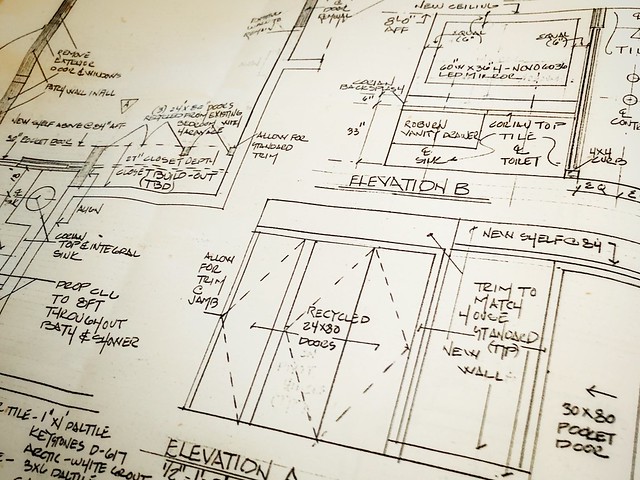 NEW CEILING
8'-0"
AFF
EQUAL
(6")
EQUAL
(6")
60"W X 36"H - NOVO6036
LED MIRROR
CORIAN
BACKSPLASH
6"
33"
ROBURN
VANITY DRAWER
&
SINK
CORIAN TOP
TILE
&
TOILET
4X4
CURB
ELEVATION B
REMOVE
EXTERIOR
DOOR & WINDOWS
PATH WALL INFILL
4
NEW SHELF ABOVE @ 84" AFF
(3) 24"X80" DOORS
RECYCLED FROM EXISTING
BEDROOM WITH
HARDWARE
ALLOW FOR
STANDARD
TRIM
27" CLOSET DEPTH
CLOSET BUILD-OUT
(TBD)
ALIGN
CORIAN
TOP & INTEGRAL
SINK
DROP CLG
TO 8FT
THROUGHOUT
BATH & SHOWER
ALLOW
FOR
TRIM
&
JAMB
RECYCLED
24X80
DOORS
NEW SHELF @ 84
TRIM TO
MATCH
HOUSE
STANDARD
(TYP)
NEW
WALL
30X80
POCKET
DOOR
TILE - 1"X1" DALTILE
KEYSTONES D-617
ARCTIC-WHITE GROUT
3X6 DALTILE
ELEVATION A